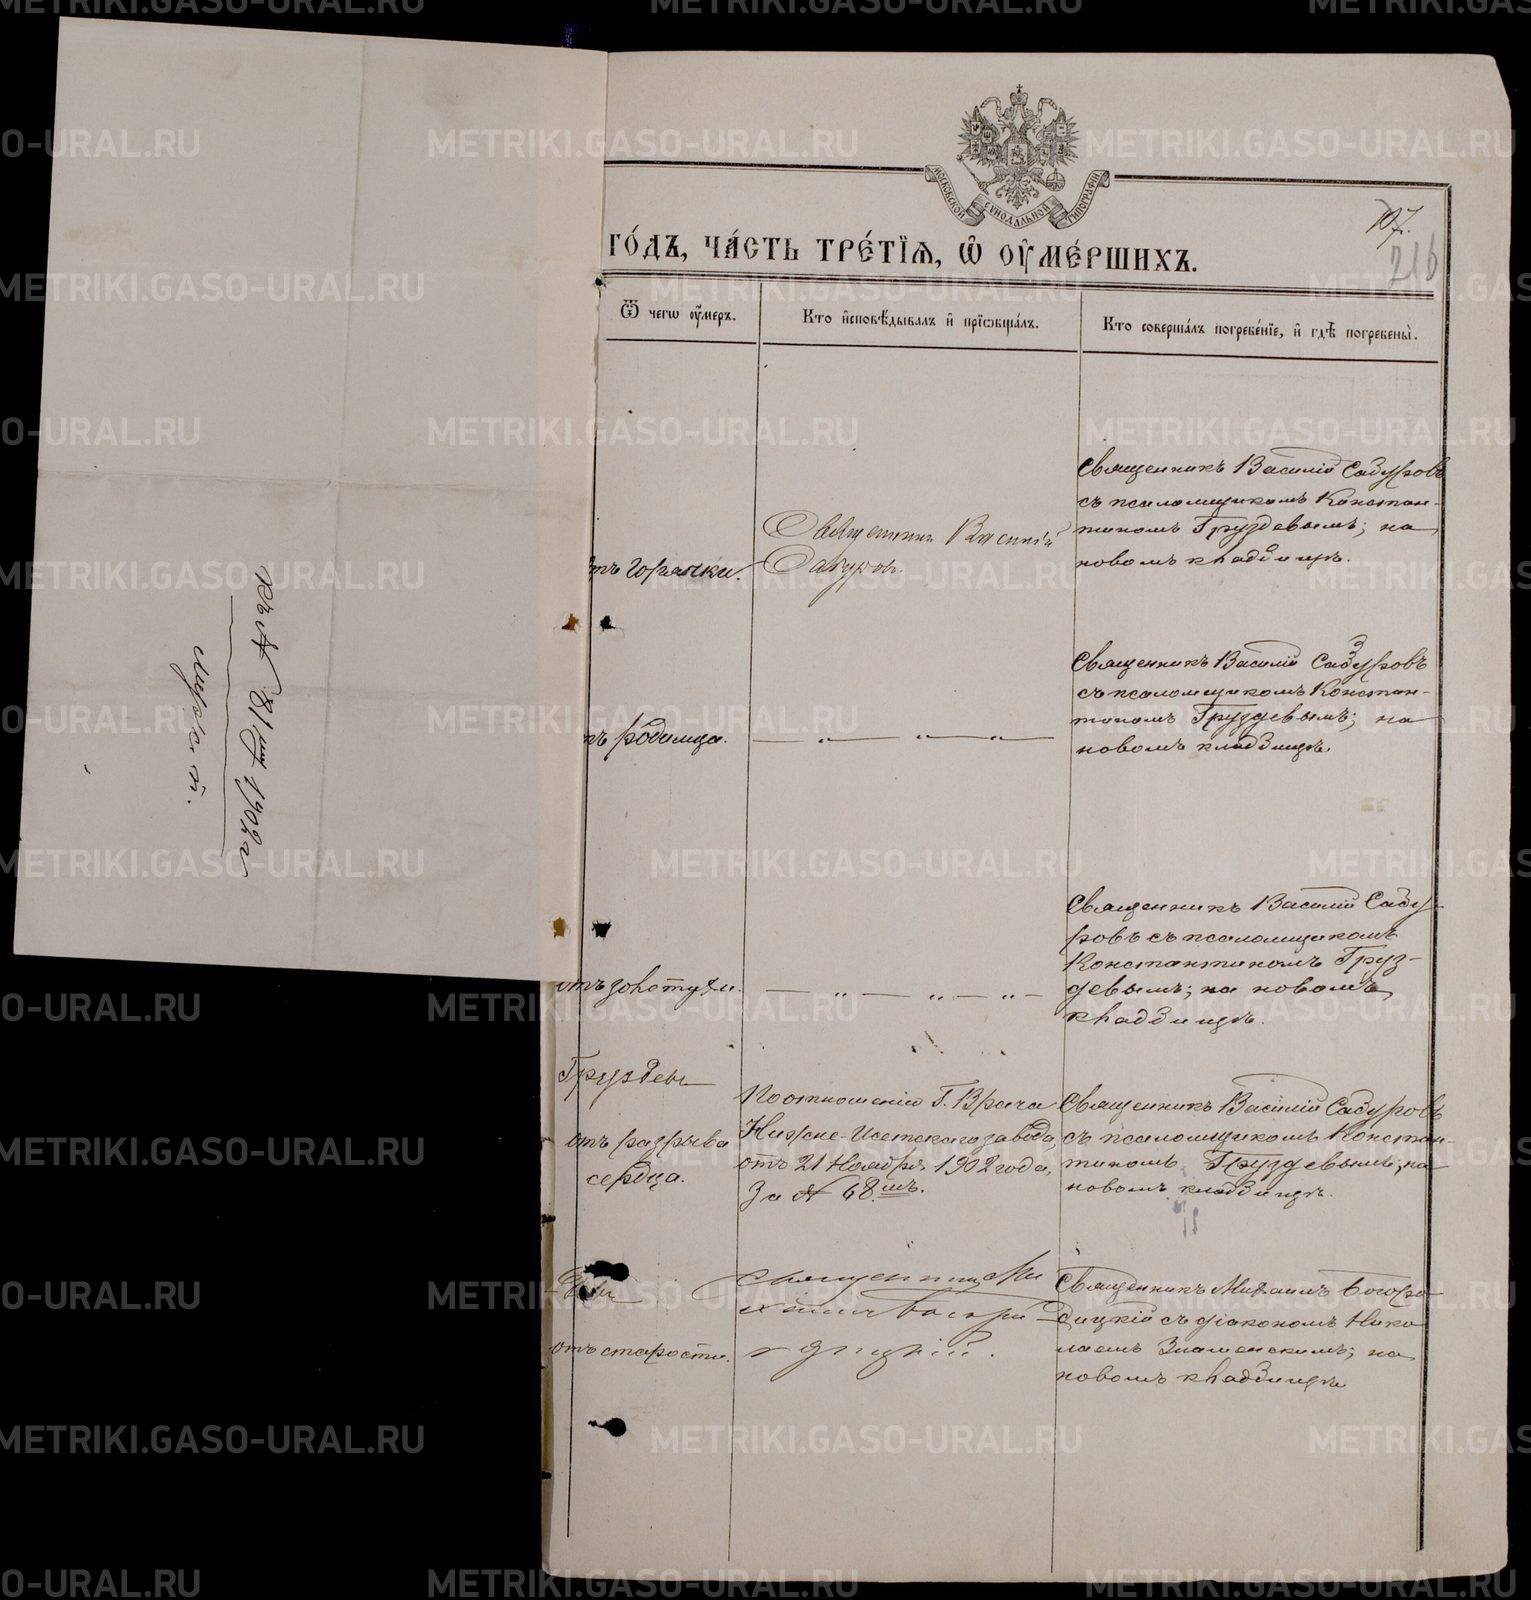 METRIKI.GASO-URAL.RU
МОСКОВСКОЙ СѴНОДАЛЬНОЙ ТИПОГРАФІИ
107.
216
ГО́ДЪ, ЧА́СТЬ ТРЕ́ТЇѦ, Ѽ ОУ҆МЕ́РШИХЪ.
Ѿ чегѡ оу҆́меръ.
Кто и҆сповѣ́дывалъ и҆ прїѡбща́лъ.
Кто соверша́лъ погребе́нїе, и҆ гдѣ̀ погребены̀.
отъ горячки.
Священникъ Василій
Сабуровъ.
Священникъ Василій Сабуровъ
съ псаломщикомъ Констан-
тиномъ Груздевымъ; на
новомъ кладбищѣ.
родимца.
— „ — „ — „ —
Священникъ Василій Сабуровъ
съ псаломщикомъ Констан-
тиномъ Груздевымъ; на
новомъ кладбищѣ.
отъ золотухи.
— „ — „ — „ —
Священникъ Василій Сабу-
ровъ съ псаломщикомъ
Константиномъ Груз-
девымъ; на новомъ
кладбищѣ.
Груздевъ
отъ разрыва
сердца.
По отношенію Г. Врача
Нижне-Исетскаго завода,
отъ 21 Ноября 1902 года,
за № 68.мъ.
Священникъ Василій Сабуровъ
съ псаломщикомъ Констан-
тиномъ Груздевымъ; на
новомъ кладбищѣ.
отъ старости.
Священникъ Ми
хаилъ Богоро
дицкій.
Священникъ Михаилъ Богоро-
дицкій съ діакономъ Нико
лаемъ Знаменскимъ; на
новомъ кладбищѣ
къ № 81 1902 г.